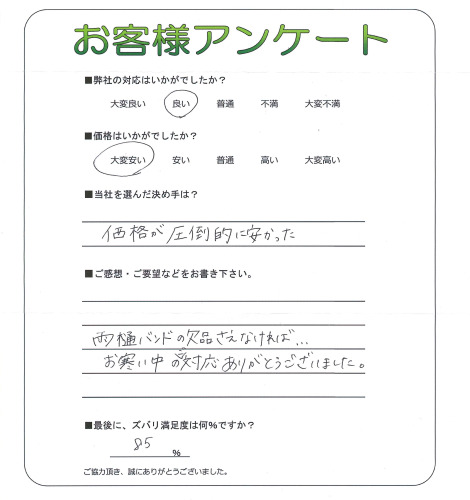 お客様アンケート
■弊社の対応はいかがでしたか？
大変良い 良い 普通 不満 大変不満
■価格はいかがでしたか？
大変安い 安い 普通 高い 大変高い
■当社を選んだ決め手は？
価格が圧倒的に安かった
■ご感想・ご要望などをお書き下さい。
雨樋バンドの欠品さえなければ...
お寒い中の対応ありがとうございました。
■最後に、ズバリ満足度は何%ですか？
85 %
ご協力頂き、誠にありがとうございました。